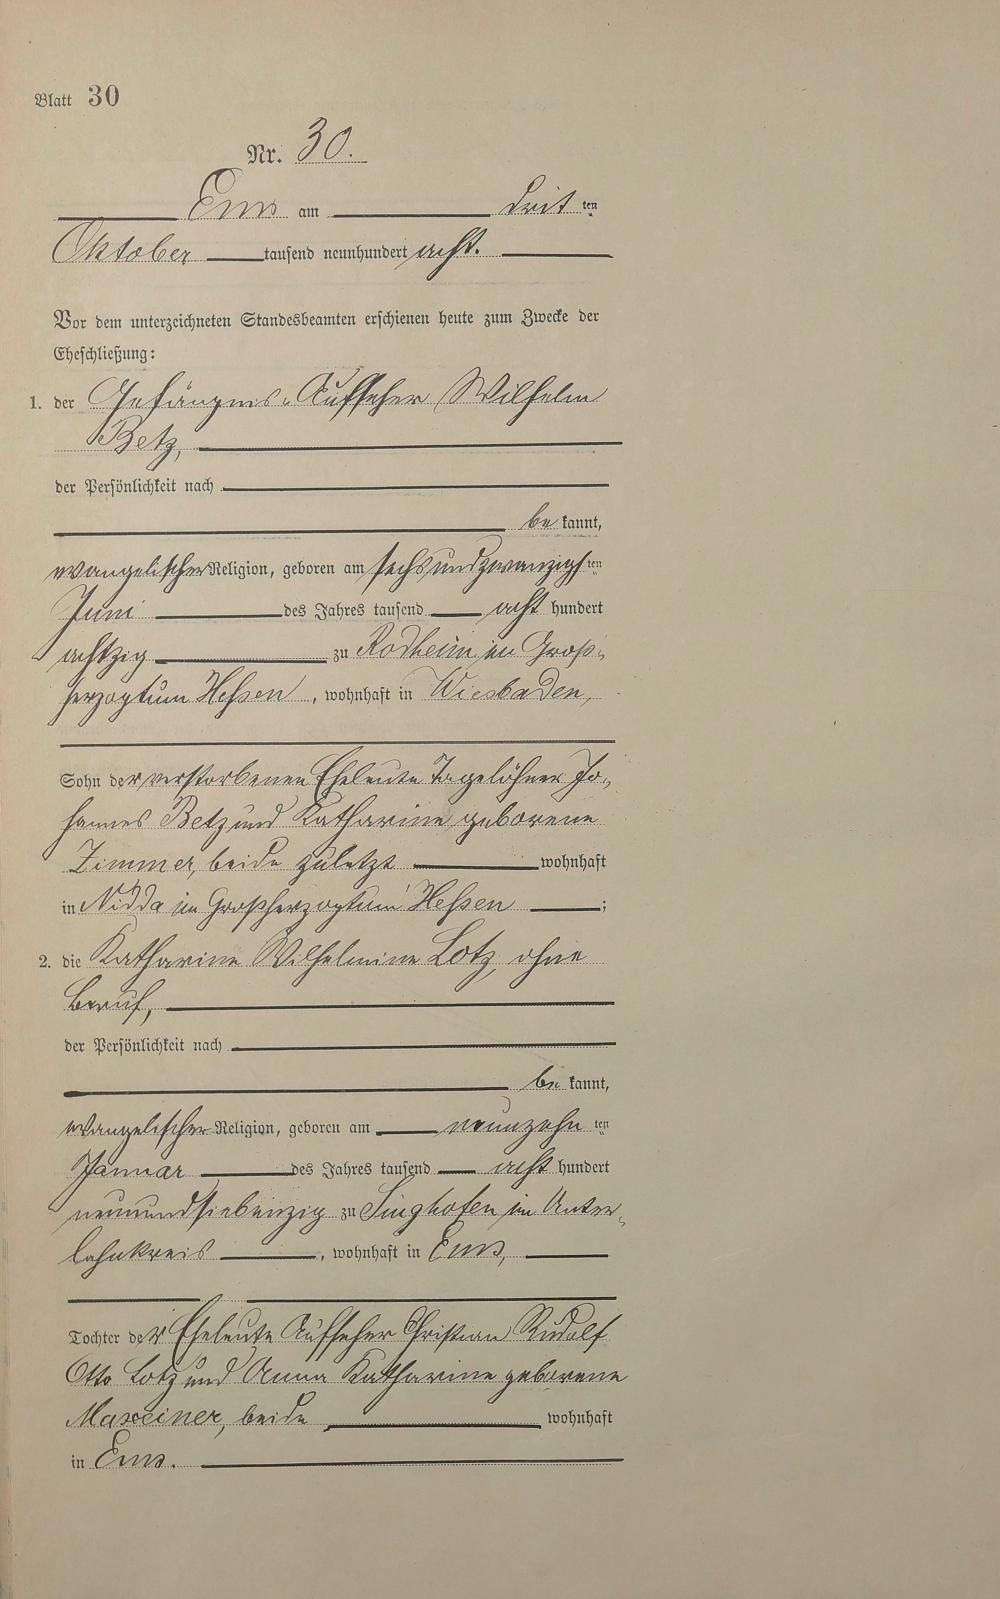 Blatt 30
Nr. 30.
Ems am dritten
Oktober tausend neunhundert acht.
Vor dem unterzeichneten Standesbeamten erschienen heute zum Zwecke der
Eheschließung:
1. der Gefängnis-Aufseher Wilhelm
Betz,
der Persönlichkeit nach
bekannt,
evangelischer Religion, geboren am sechsundzwanzigsten
Juni des Jahres tausend acht hundert
achtzig zu Rodheim im Groß-
herzogtum Hessen, wohnhaft in Wiesbaden,
Sohn der verstorbenen Eheleute Tagelöhner Jo-
hannes Betz und Katharine geborene
Zimmer, beide zuletzt wohnhaft
in Nidda im Großherzogtum Hessen;
2. die Katharine Wilhelmine Lotz, ohne
Beruf,
der Persönlichkeit nach
bekannt,
evangelischer Religion, geboren am neunzehnten
Januar des Jahres tausend acht hundert
neunundsiebenzig zu Singhofen im Unter-
lahnkreis, wohnhaft in Ems,
Tochter der Eheleute Aufseher Christian Rudolf
Otto Lotz und Anna Katharine geborene
Maxeiner, beide wohnhaft
in Ems.